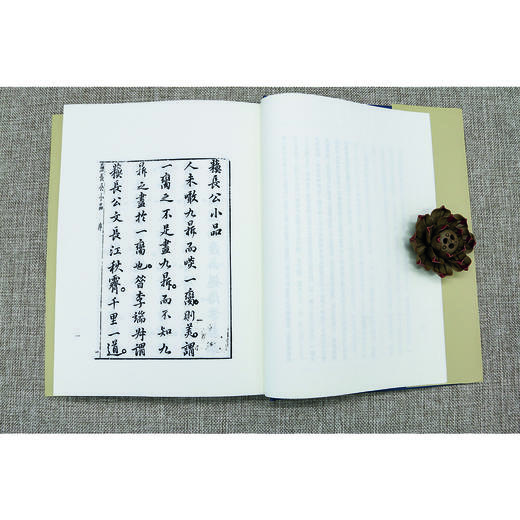 蘇長公小品
人未噉九鼎而啖一臠。則美。謂
一臠之不足盡九鼎。而不知九
鼎之盡於一臠也。昔李端叔謂
蘇長公文長江秋霽。千里一道。
蘇長公小品 序